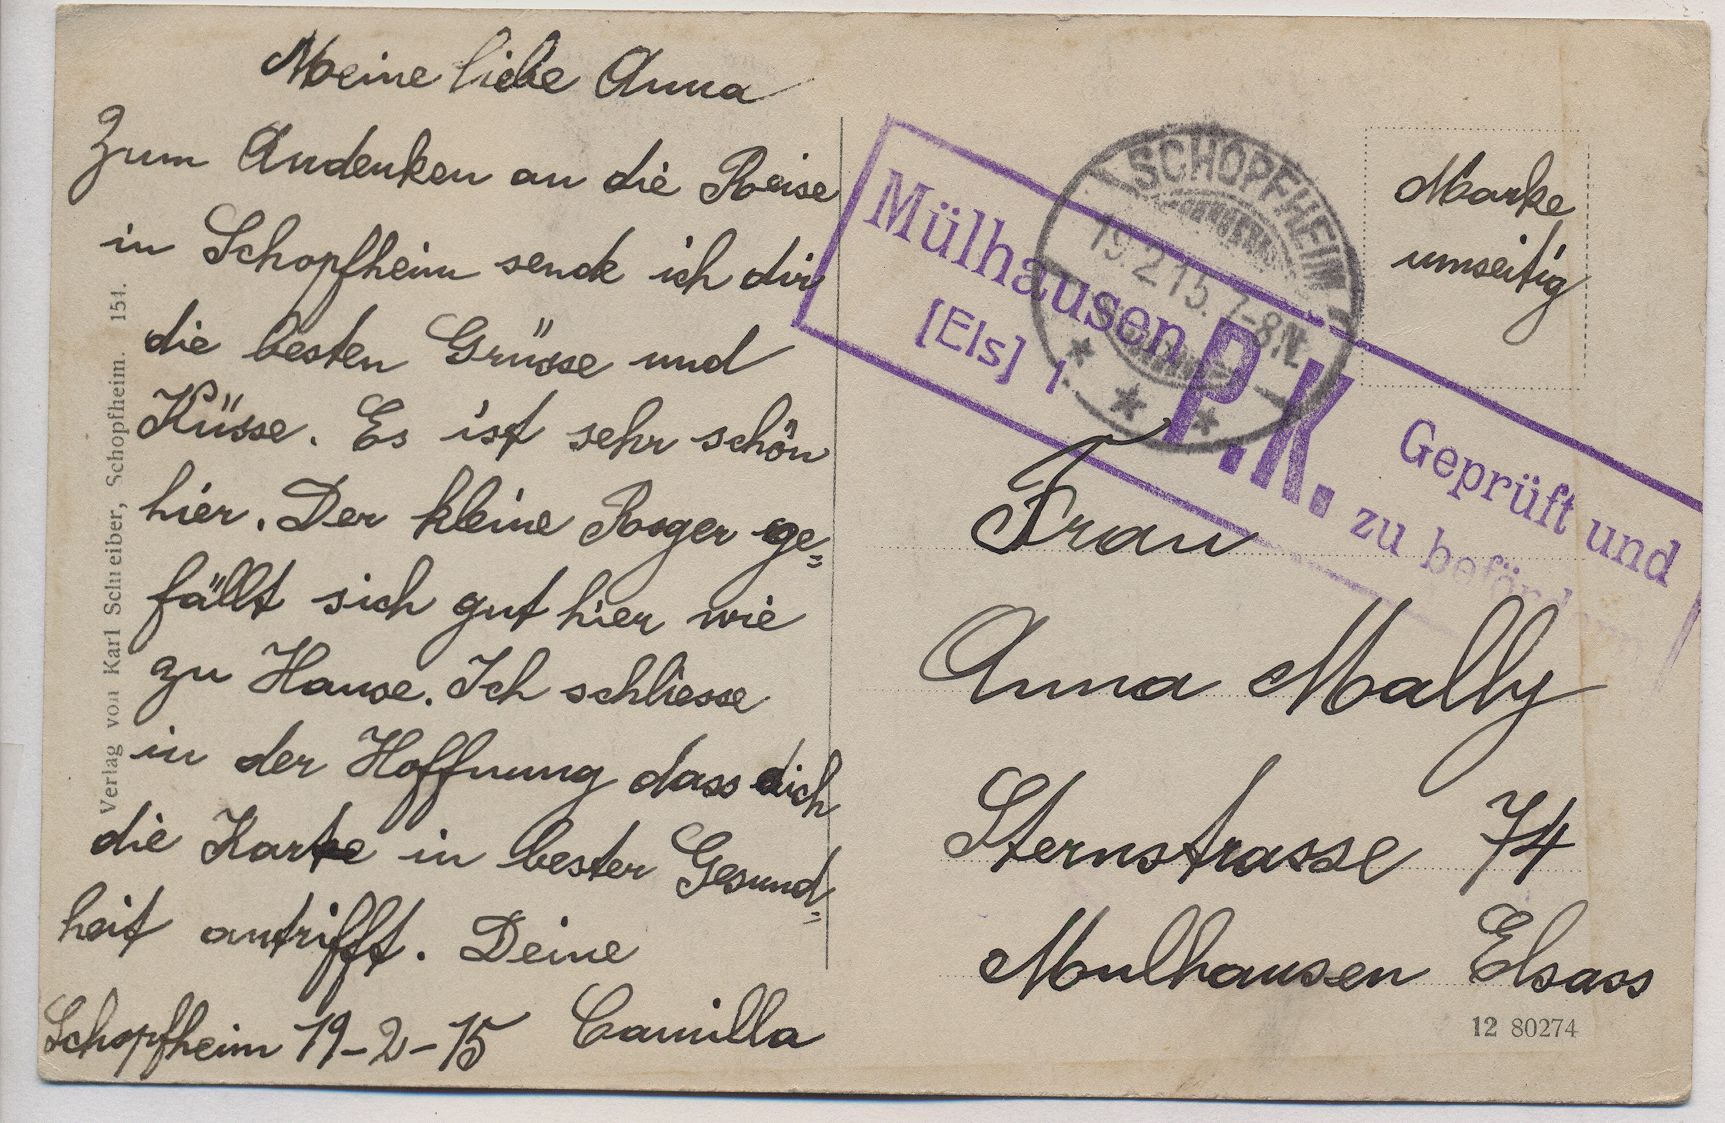 Meine liebe Anna
Zum Andenken an die Reise
in Schopfheim sende ich dir
die besten Grüsse und
Küsse. Es ist sehr schön
hier. Der kleine Roger ge=
fällt sich gut hier wie
zu Hause. Ich schliesse
in der Hoffnung dass dich
die Karte in bester Gesund=
heit antrifft. Deine
Schopfheim 19-2-15 Camilla
Verlag von Karl Schreiber, Schopfheim. 151.
Mülhausen
[Els] 1.
P.K.
Geprüft und
zu befördern
SCHOPFHEIM
19.2.15.7-8N.
Marke
umseitig
Frau
Anna Mally
Sternstrasse 74
Mulhausen Elsass
12 80274